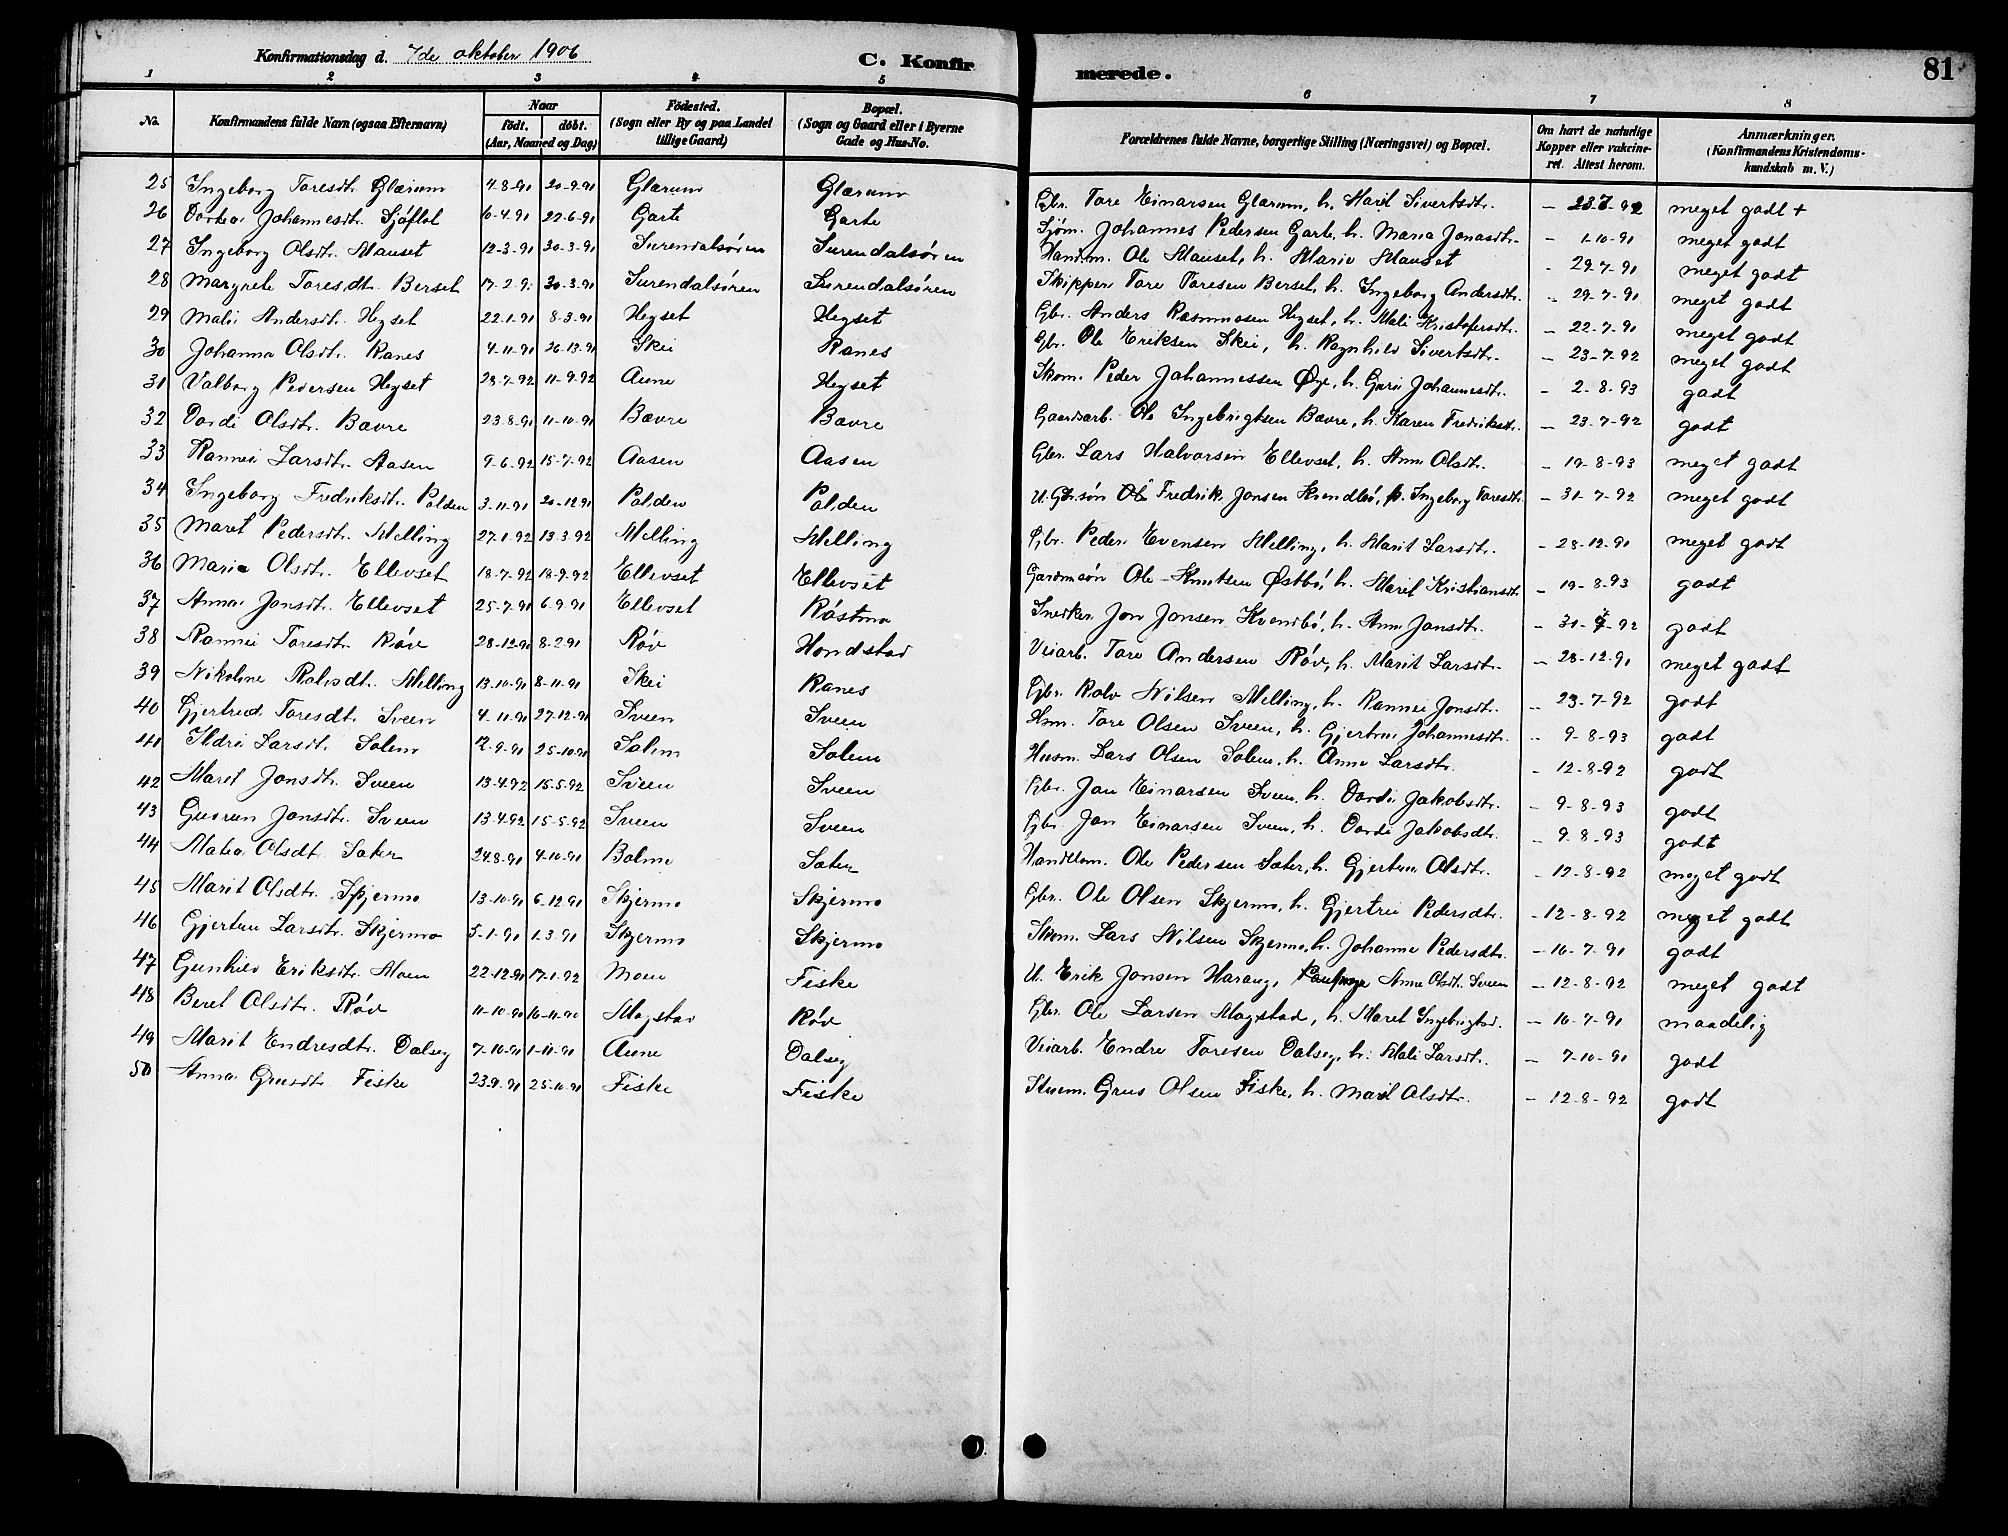 Konfirmationsdag d. 7de oktober 1906
C. Konfir
merede.
81
1 2 3 4 5 6 7 8
No. Konfirmandens fulde Navn (ogsaa Efternavn) Naar födt. döbt. (Aar, Maaned og Dag) Födested. (Sogn eller By og paa Landet tillige Gaard) Bopæl. (Sogn og Gaard eller i Byerne Gade og Hus-No. Forældrenes fulde Navne, borgerlige Stilling (Næringsvei) og Bopæl. Om havt de naturlige Kopper eller vakcineret. Attest herom. Anmærkninger. (Konfirmandens Kristendomskundskab m. V.)
25 Ingeborg Toresdt. Glærum 4-8-91 20-9-91 Glærum Glærum Gbr. Tore Einarsen Glærum, h. Marit Sivertsdt. - 23-7-92 meget godt +
26 Dortea Johannesdt. Sjöflot 6-4-91 22-6-91 Garte Garte Sjöm. Johannes Pedersen Garte, h. Maria Jonasdt. - 1-10-91 meget godt
27 Ingeborg Olsdt. Mauset 12-3-91 30-3-91 Surendalsören Surendalsören Handm. Ole Mauset, h. Marie Mauset - 29-7-91 meget godt
28 Margrete Toresdt. Berset 17-2-91 30-3-91 Surendalsören Surendalsören Skipper Tore Toresen Berset, h. Ingeborg Andersdt. - 29-7-91 meget godt
29 Mali Andersdt. Heyset 22-1-91 8-3-91 Heyset Heyset Gbr. Anders Rasmussen Heyset, h. Mali Kristofersdt. - 22-7-91 meget godt
30 Johanna Olsdt. Ranes 4-11-91 26-13-91 Skei Ranes Gbr. Ole Eriksen Skei, h. Ragnhild Sivertsdt. - 23-7-92 meget godt
31 Valborg Pedersen Heyset 28-7-92 11-9-92 Aune Heyset Skom. Peder Johannessen Öye, h. Guri Johannesdt. - 2-8-93 godt
32 Dordi Olsdt. Bævre 23-8-91 11-10-91 Bævre Bævre Gaardsarb. Ole Ingebrigtsen Bævre, h. Karen Fredriksdt. - 23-7-92 godt
33 Rannei Larsdt. Aasen 9-6-92 15-7-92 Aasen Aasen Gbr. Lars Halvorsen Ellevset, h. Ane Olsdt. - 19-8-93 meget godt
34 Ingeborg Fredriksdt. Polden 3-11-91 20-12-91 Polden Polden U. Gbr.sön Fredrik Jonsen Kvendbö, p. Ingeborg Toresdt. - 31-7-92 meget godt
35 Maret Pedersdt. Melling 27-1-92 13-3-92 Melling Melling Gbr. Peder Evensen Melling, h. Marit Larsdt. - 28-12-91 meget godt
36 Maria Olsdt. Ellevset 18-7-92 18-9-92 Ellevset Ellevset Gardmsön Ole Knutsen Östbö, h. Maret Kristiansdt. - 19-8-93 godt
37 Anna Jonsdt. Ellevset 25-7-91 6-9-91 Ellevset Röstmo Snedker Jon Jonsen Kvendbö, h. Ane Jonsdt. - 31-7-92 godt
38 Rannei Toresdt. Röv 28-12-90 8-2-91 Röv Hondstad Veiarb. Tore Andersen Röv, h. Marit Larsdt. - 28-12-91 meget godt
39 Nikoline Rolvsdt. Melling 13-10-91 8-11-91 Skei Ranes Gbr. Rolv Nilsen Melling, h. Rannei Jonsdt. - 23-7-92 godt
40 Gjertrud Toresdt. Sveen 4-11-91 27-12-91 Sveen Sveen Hsm. Tore Olsen Sveen, h. Gjertrud Johannesdt. - 9-8-93 godt
41 Ildri Larsdt. Solem 12-9-91 25-10-91 Solem Solem Husm. Lars Olsen Solem, h. Anne Larsdt. - 12-8-92 godt
42 Maret Jonsdt. Sveen 13-4-92 15-5-92 Sveen Sveen Gbr. Jon Einarsen Sveen, h. Dordi Jakobsdt. - 9-8-93 godt
43 Gudrun Jonsdt. Sveen 13-4-92 15-5-92 Sveen Sveen Gbr. Jon Einarsen Sveen, h. Dordi Jakobsdt. - 9-8-93 godt
44 Matea Olsdt. Sæter 24-8-91 4-10-91 Bolme Sæter Handelsm. Ole Pedersen Sæter, h. Gjertru Olsdt. - 12-8-92 meget godt
45 Marit Olsdt. Skjermo 13-10-91 6-12-91 Skjermo Skjermo Gbr. Ole Olsen Skjermo, h. Gjertru Pedersdt. - 12-8-92 meget godt
46 Gjertru Larsdt. Skjermo 5-1-91 1-3-91 Skjermo Skjermo Skom. Lars Nilsen Skjermo, h. Johanne Pedersdt. - 16-7-91 godt
47 Gunhild Eriksdt. Moen 22-12-91 17-1-92 Moen Fiske U. Erik Jonsen Harang, Anne Olsdt. Sveen - 12-8-92 meget godt
48 Beret Olsdt. Röv 11-10-90 16-11-90 Mogstad Röv Gbr. Ole Larsen Mogstad, h. Maret Ingebrigtsd. - 16-7-91 maadelig
49 Marit Endresdt. Dalsey 7-10-91 1-11-91 Aune Dalsey Veiarb. Endre Toresen Dalsey, h. Mali Larsdt. - 7-10-91 godt
50 Anna Grusdt. Fiske 23-9-91 25-10-91 Fiske Fiske Grus Olsen Fiske, h. Marit Olsdt. - 12-8-92 godt